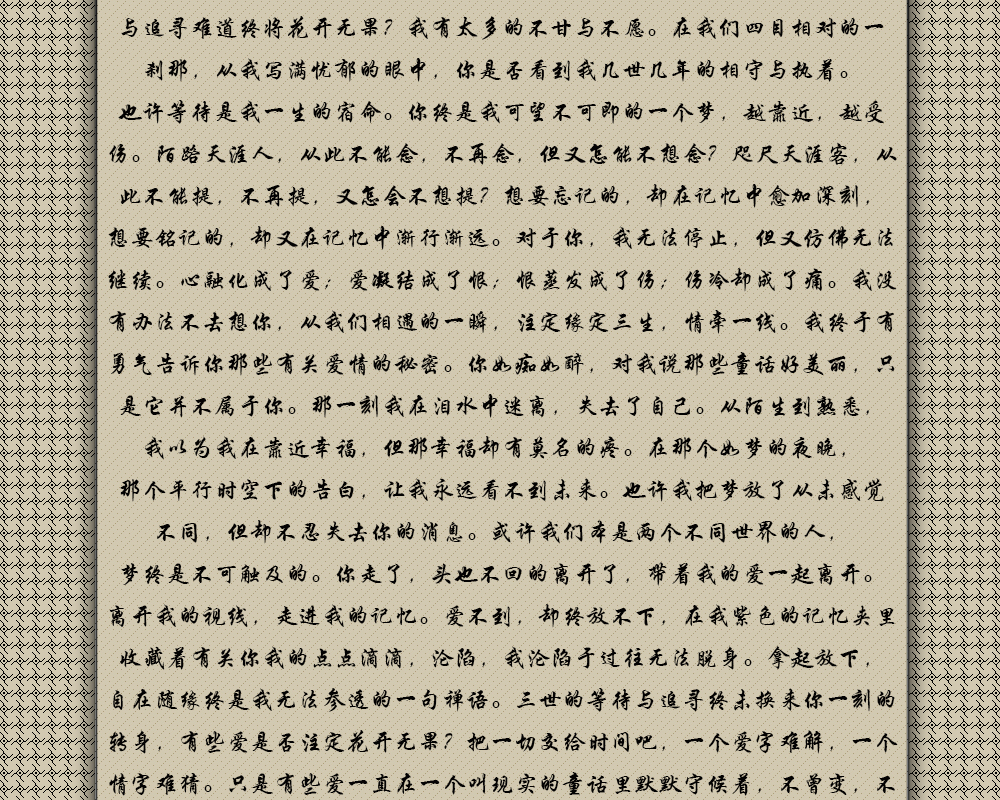 与追寻难道终将花开无果？我有太多的不甘与不愿。在我们四目相对的一
刹那，从我写满忧郁的眼中，你是否看到我几世几年的相守与执着。
也许等待是我一生的宿命。你终是我可望不可即的一个梦，越靠近，越受
伤。陌路天涯人，从此不能念，不再念，但又怎能不想念？咫尺天涯客，从
此不能提，不再提，又怎会不想提？想要忘记的，却在记忆中愈加深刻，
想要铭记的，却又在记忆中渐行渐远。对于你，我无法停止，但又仿佛无法
继续。心融化成了爱；爱凝结成了恨；恨蒸发成了伤；伤冷却成了痛。我没
有办法不去想你，从我们相遇的一瞬，注定缘定三生，情牵一线。我终于有
勇气告诉你那些有关爱情的秘密。你如痴如醉，对我说那些童话好美丽，只
是它并不属于你。那一刻我在泪水中迷离，失去了自己。从陌生到熟悉，
我以为我在靠近幸福，但那幸福却有莫名的疼。在那个如梦的夜晚，
那个平行时空下的告白，让我永远看不到未来。也许我把梦放了从未感觉
不同，但却不忍失去你的消息。或许我们本是两个不同世界的人，
梦终是不可触及的。你走了，头也不回的离开了，带着我的爱一起离开。
离开我的视线，走进我的记忆。爱不到，却终放不下，在我紫色的记忆夹里
收藏着有关你我的点点滴滴，沦陷，我沦陷于过往无法脱身。拿起放下，
自在随缘终是我无法参透的一句禅语。三世的等待与追寻终未换来你一刻的
转身，有些爱是否注定花开无果？把一切交给时间吧，一个爱字难解，一个
情字难猜。只是有些爱一直在一个叫现实的童话里默默守候着，不曾变，不